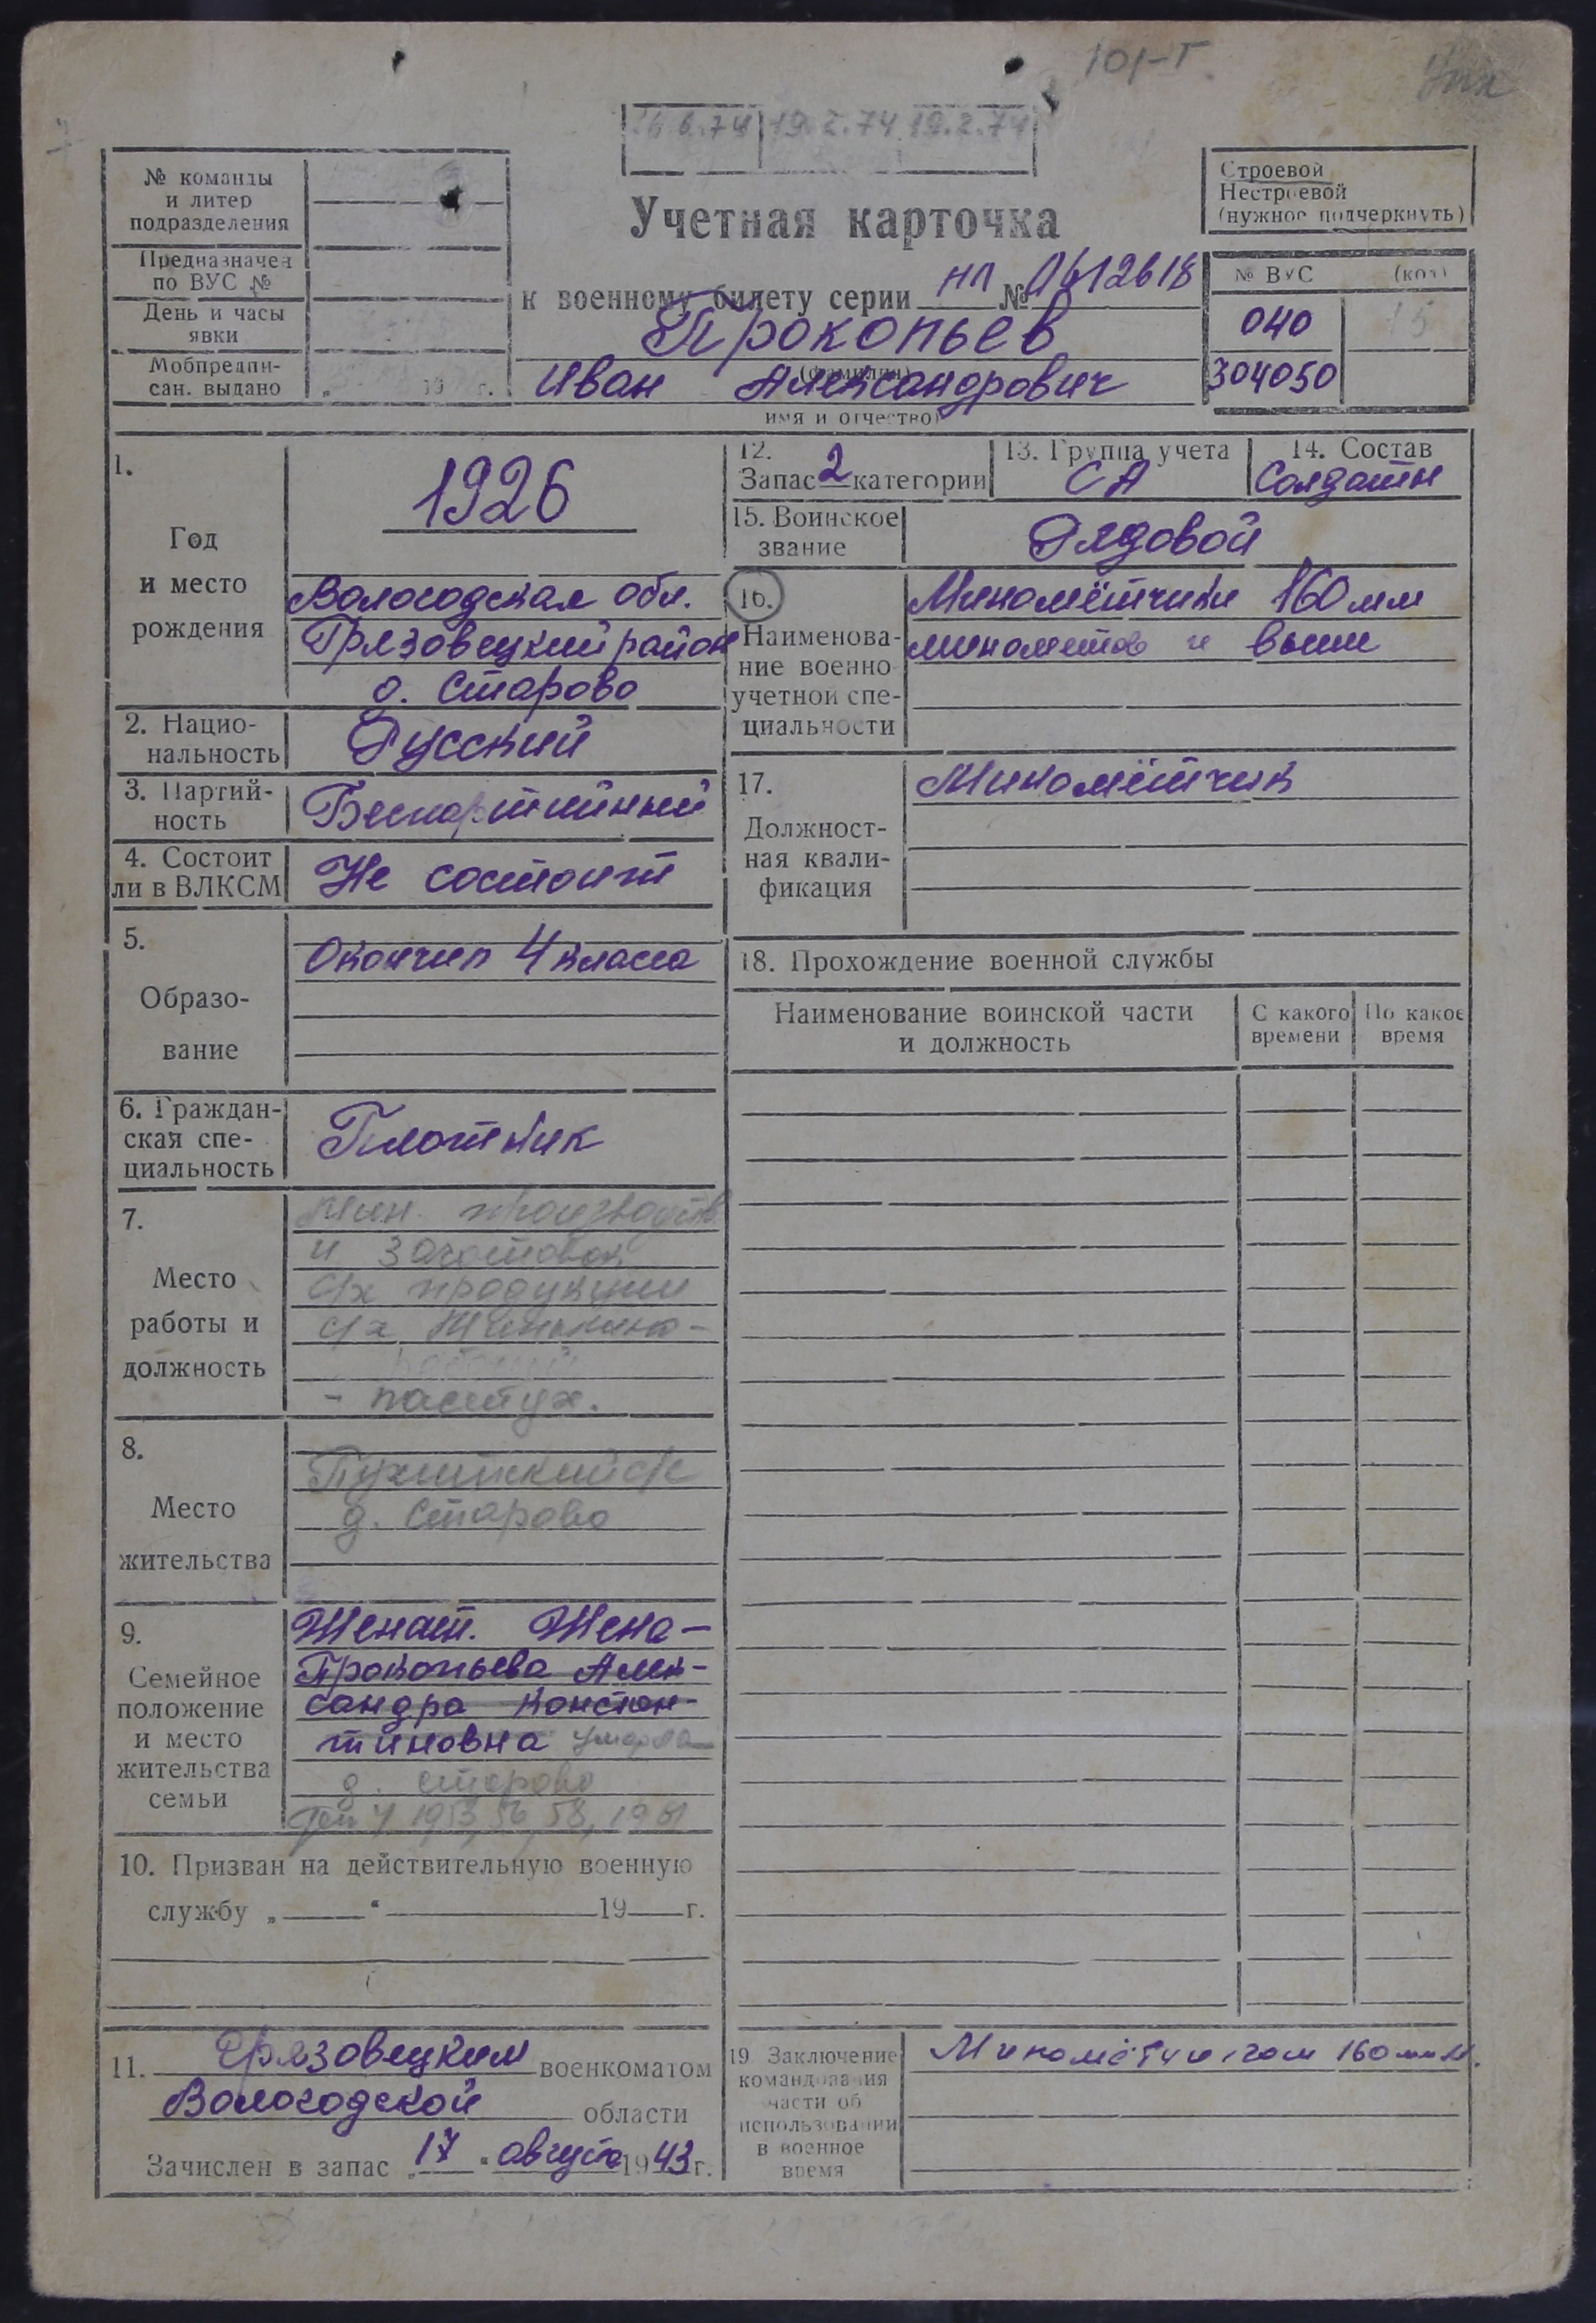 101-Т.
6.6.74 19.2.74 19.2.74
№ команды
и литер
подразделения
Предназначен
по ВУС №
День и часы
явки
Мобпредпи-
сан. выдано „ 19 г.
Строевой
Нестроевой
(нужное подчеркнуть)
Учетная карточка
к военному билету серии НЛ № 0612618
Прокопьев
(фамилия)
Иван Александрович
имя и отчество)
№ ВУС (код)
040 15
304050
1.
Год
и место
рождения
1926
Вологодская обл.
Грязовецкий район
д. Старово
2. Нацио-
нальность
Русский
3. Партий-
ность
Беспартийный
4. Состоит
ли в ВЛКСМ
Не состоит
5.
Образо-
вание
Окончил 4 класса
6. Граждан-
ская спе-
циальность
Плотник
7.
Место
работы и
должность
Мин. производств
и заготовок
с/х продукции
с/х
- пастух.
8.
Место
жительства
с/с
д. Старово
9.
Семейное
положение
и место
жительства
семьи
Женат. Жена-
Прокопьева Алек-
сандра Констан-
тиновна умерла
д. Старово
4 1953, 56, 58, 1961
10. Призван на действительную военную
службу „ “ 19 г.
11. Грязовецким военкоматом
Вологодской области
Зачислен в запас „17 “ августа 1943 г.
12.
Запас 2 категории
13. Группа учета
СА
14. Состав
Солдаты
15. Воинское
звание
Рядовой
16.
Наименова-
ние военно
учетной спе-
циальности
Миномётчики 160 мм
минометов и выше
17.
Должност-
ная квали-
фикация
Миномётчик
18. Прохождение военной службы
Наименование воинской части
и должность
С какого
времени
По какое
время
19 Заключение
командования
части об
использовании
в военное
время
Миномётчиком 160 мм м.